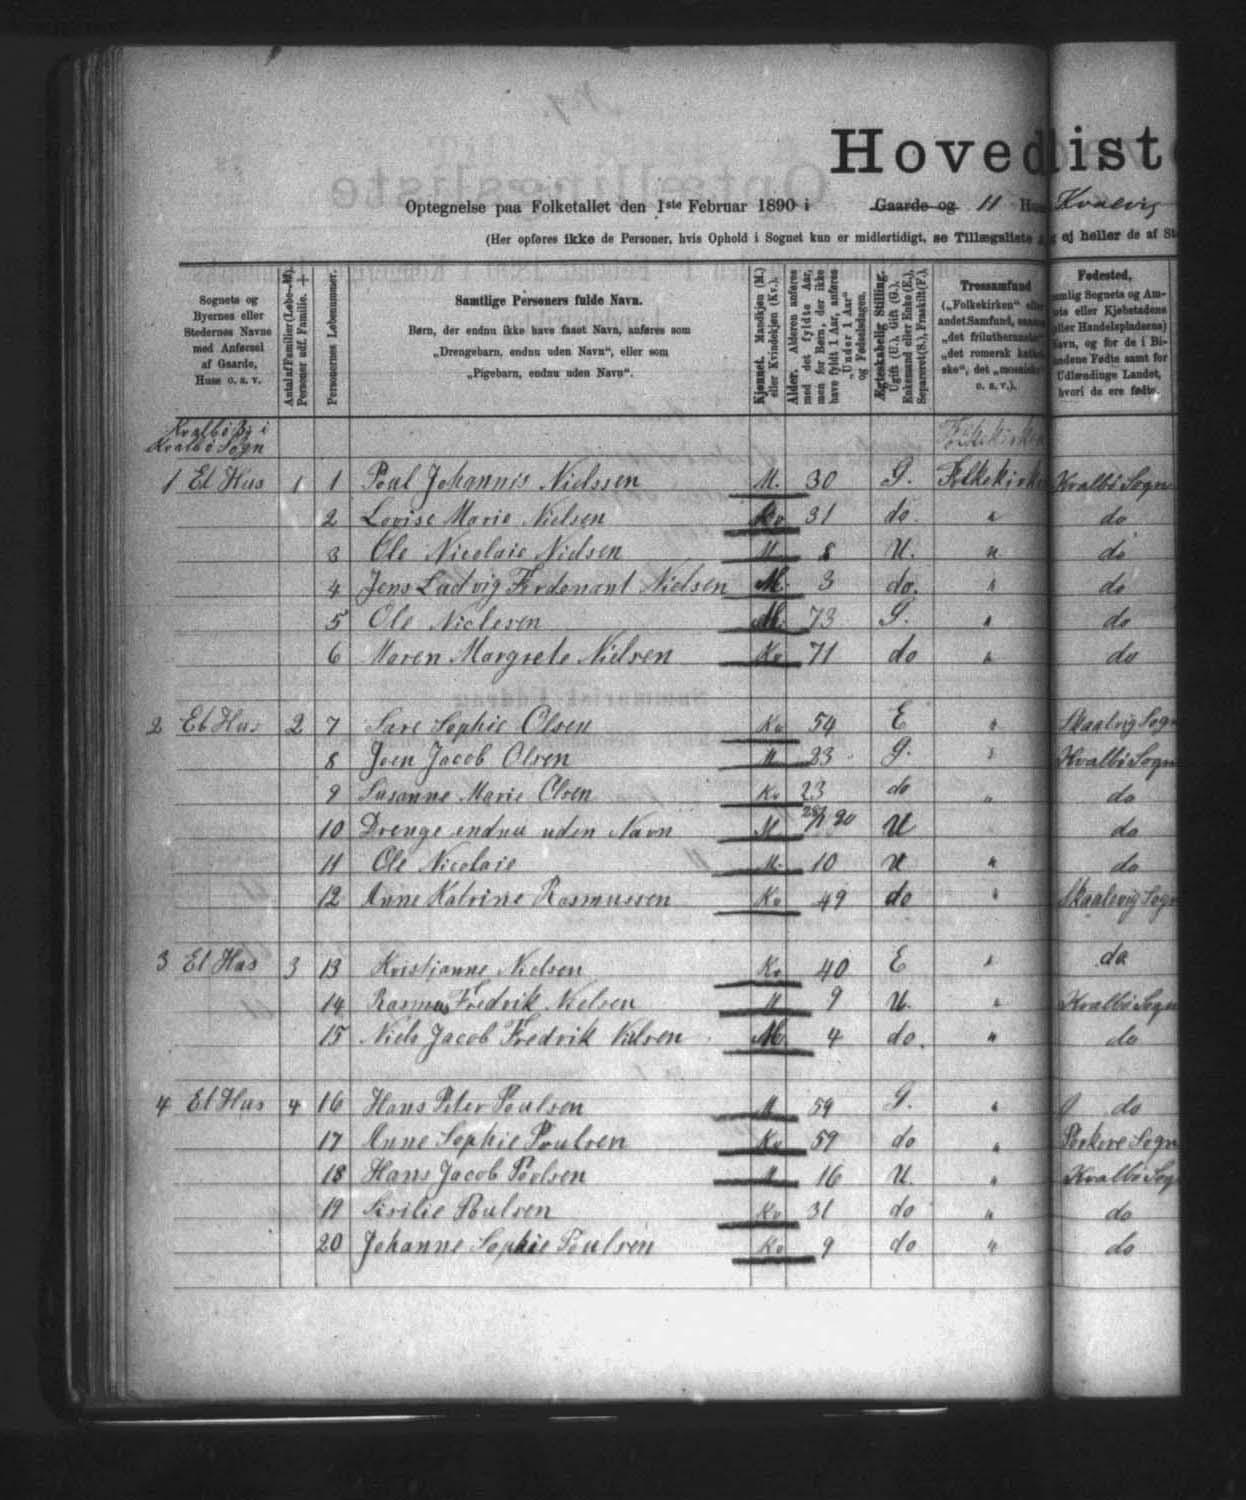 Hovedliste
Optegnelse paa Folketallet den 1ste Februar 1890 i Gaarde og 11 Huse Kvalvig
(Her opføres ikke de Personer, hvis Ophold i Sognet kun er midlertidigt, se Tillægsliste ej heller de af
Sognets og Byernes eller Stedernes Navne med Anførsel af Gaarde, Huse o. s. v.
Antal af Familier (Løbe-№). Personer udf. Familie. +
Personernes Løbenummer.
Samtlige Personers fulde Navn.
Børn, der endnu ikke have faaet Navn, anføres som
„Drengebarn, endnu uden Navn“, eller som
„Pigebarn, endnu uden Navn“.
Kjønnet. Mandkjøn (M.) eller Kvindekjøn (Kv.).
Alder. Alderen anføres med det fyldte Aar, men for Børn, der ikke have fyldt 1 Aar, anføres „Under 1 Aar“ og Fødselsdagen.
Ægteskabelig Stilling. Ugift (U.), Gift (G.), Enkemand eller Enke (E.), Separeret (S.), Fraskilt (F.).
Trossamfund
(„Folkekirken“ eller andet Samfund, „det frilutheranske“, „det romersk katholske“, det „mosaiske“ o. s. v.).
Fødested,
nemlig Sognets og Amtets eller Kjøbstadens (eller Handelspladsens) Navn, og for de i Bilandene Fødte samt for Udlændinge Landet, hvori de ere fødte.
Kvalbø By i
Kvalbø Sogn
Folkekirken
1 Et Hus 1 1 Poul Johannis Nielssen M. 30 G. Folkekirke Kvalbø Sogn
2 Lovise Marie Nielsen Kv 31 do. " do
3 Ole Nicolaie Nielsen M 8 U. " do
4 Jens Ladvig Ferdenant Nielsen M. 3 do. " do
5 Ole Niclesen M. 73 G. " do
6 Maren Margrete Nielsen Kv 71 do " do
2 Et Hus 2 7 Sare Sophie Olsen Kv 54 E " Skaalvig Sogn
8 Joen Jacob Olsen M 23 G. " Kvalbø Sogn
9 Susanne Marie Olsen Kv 23 do " do
10 Drenge endnu uden Navn M 28/1 90 U do
11 Ole Nicolaie M. 10 U " do
12 Anne Katrine Rasmussen Kv 49 do " Skaalevig Sogn
3 Et Hus 3 13 Kristianne Nielsen Kv 40 E " do
14 Rasmus Fredrik Nielsen M 9 U. " Kvalbø Sogn
15 Niels Jacob Fredrik Nielsen M. 4 do. " do
4 Et Hus 4 16 Hans Peter Poulsen M 59 G. " do
17 Anne Sophie Poulsen Kv 59 do " Porkere Sogn
18 Hans Jacob Poulsen M 16 U. " Kvalbø Sog
19 Sisilie Poulsen Kv 31 do " do
20 Johanne Sophie Poulsen Kv 9 do " do